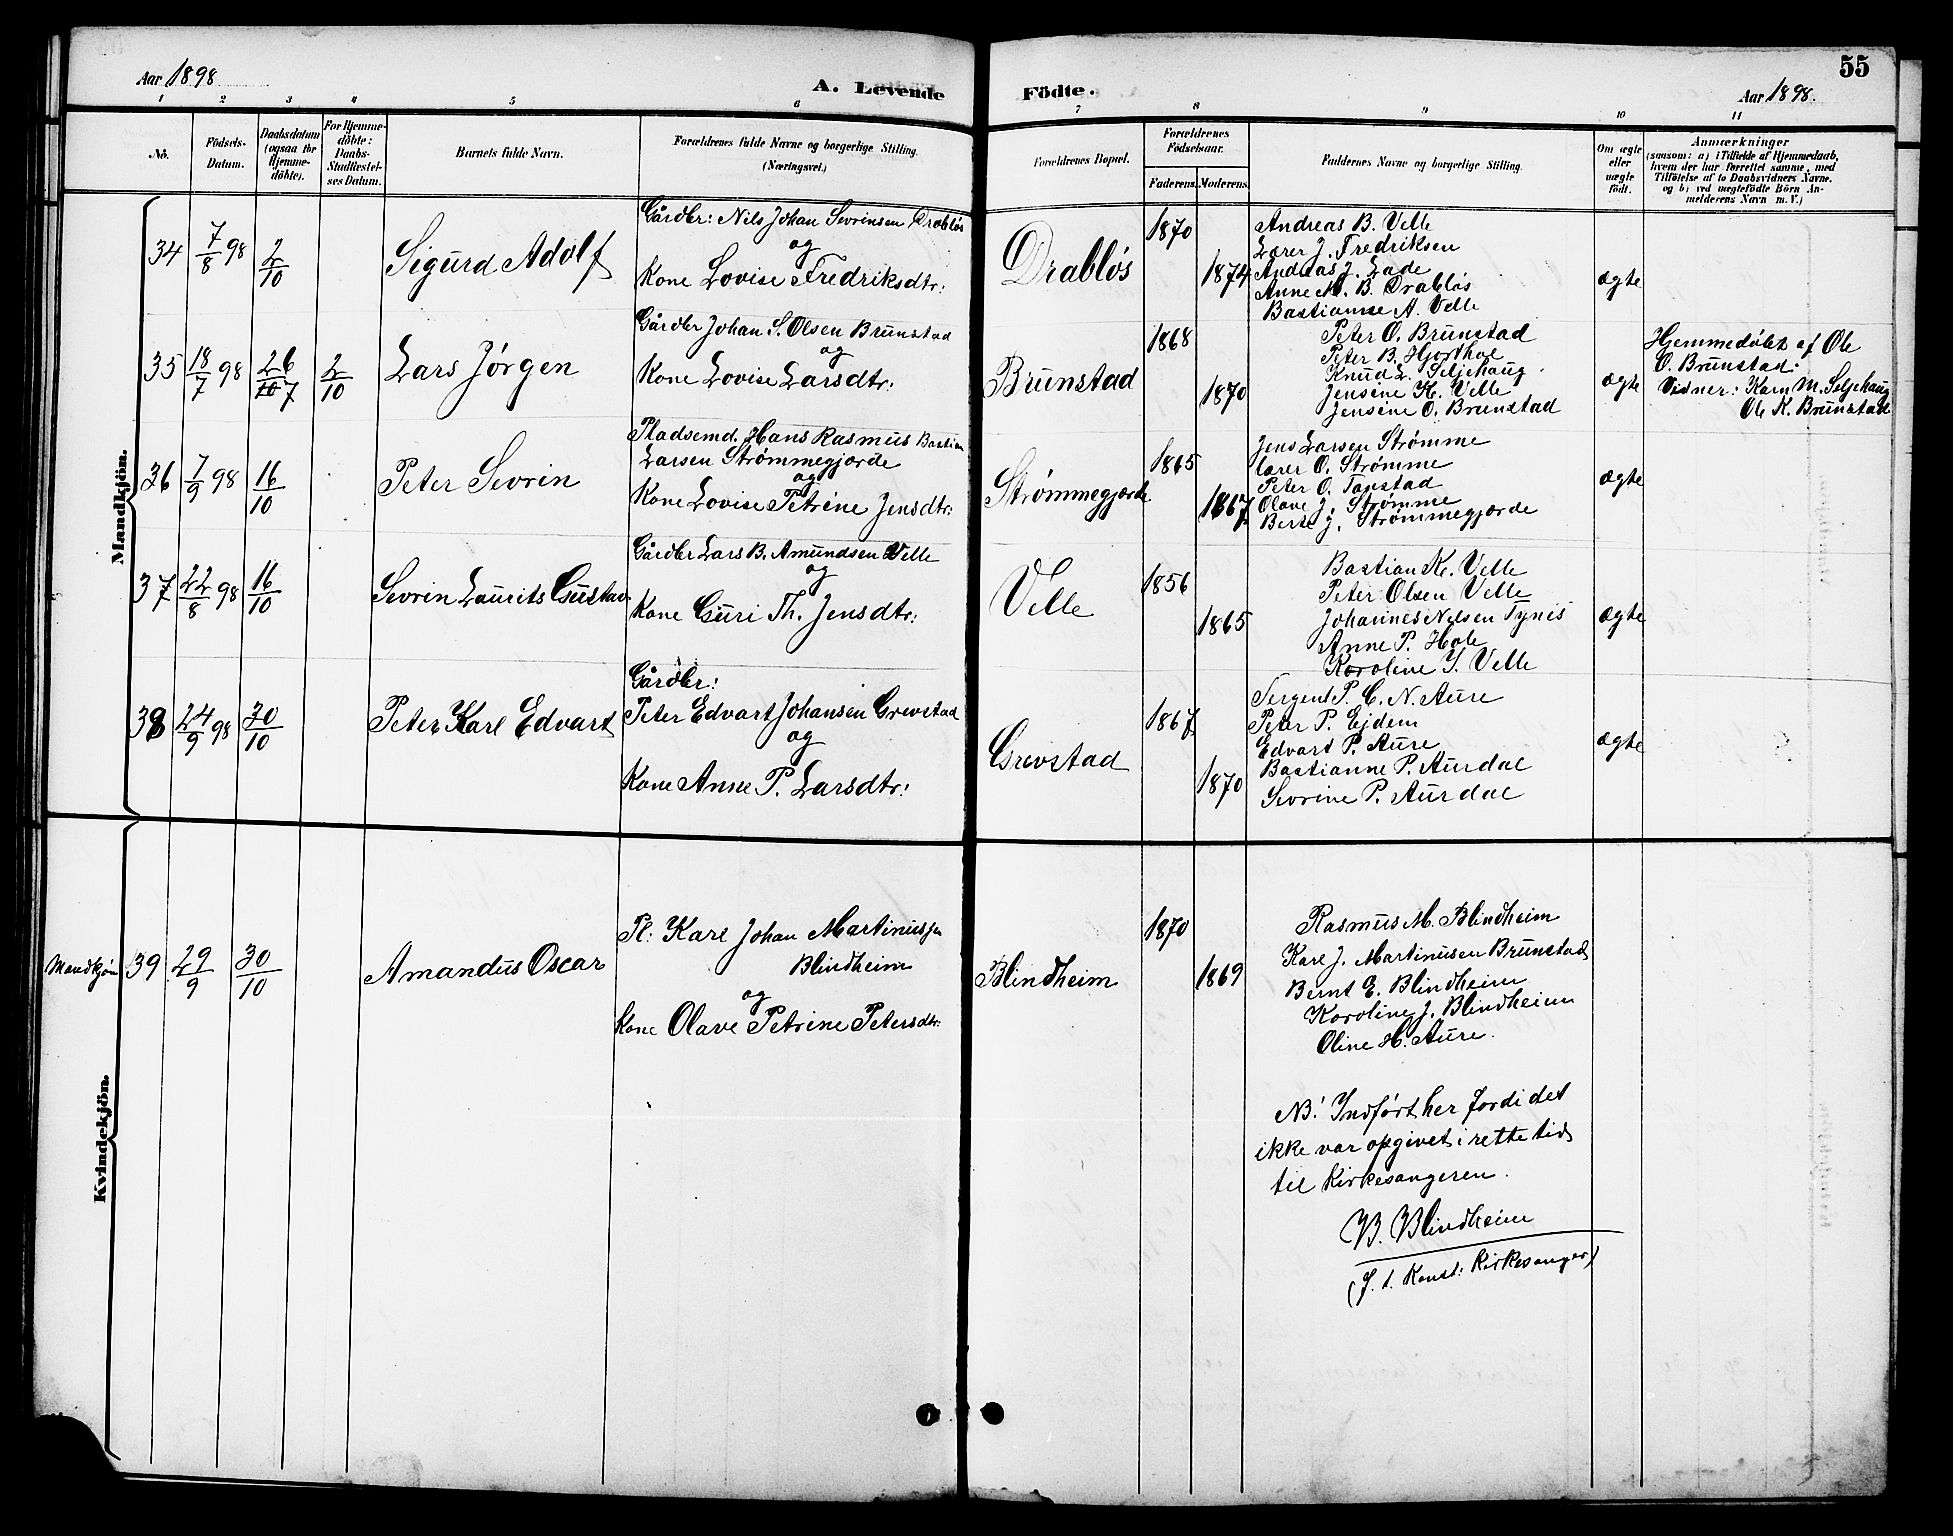 Aar 1898
A. Levende
Födte.
55
Aar 1898.
1 2 3 4 5 6 7 8 9 10 11
No.
Födsels-
Datum.
Daabsdatum
(ogsaa for
Hjemme-
döbte).
For Hjemme-
döbte:
Daabs-
Stadfæstel-
ses Datum.
Barnets fulde Navn.
Forældrenes fulde Navne og borgerlige Stilling.
(Næringsvei.)
Forældrenes Bopæl.
Forældrenes
Födselsaar.
Faderens. Moderens.
Faddernes Navne og borgerlige Stilling.
Om ægte
eller
uægte
födt.
Anmærkninger
(saasom: a) i Tilfælde af Hjemmedaab,
hvem der har forrettet samme, med
Tilföielse af to Daabsvidners Navne.
og b) ved uægtefödte Börn An-
melderens Navn m. V.)
Mandkjön.
34 7/8 98 2/10
Sigurd Adolf
Gårdbr: Nils Johan Sevrinsen Drabløs
og
Kone Lovise Fredriksdtr:
Drabløs
1870
1874
Andreas B. Velle
Lærer J. Fredriksen
Andreas J. Lade
Anne M. B. Drabløs
Bastianne A. Velle
ægte
35 18/7 98 26/7 2/10
Lars Jørgen
Gårdbr Johan S. Olsen Brunstad
og
Kone Lovise Larsdtr:
Brunstad
1868
1870
Peter O. Brunstad
Peter B. Hjorthol
Knud L. Seljehaug.
Jensine K. Velle
Jensine O. Brunstad
ægte
Hjemmedøbt af Ole
O. Brunstad:
Vidner: Karn M. Seljehaug
Ole K. Brunstad
36 7/9 98 16/10
Peter Sevrin
Pladsemd. Hans Rasmus Bastian
Larsen Strømmegjerde
og
Kone Lovise Petrine Jensdtr:
Strømmegjerde
1865
1867
Jens Larsen Strømme
lærer O. Strømme
Peter O. Tapstad
Olave J. Strømme
Berte J. Strømmegjerde
ægte
37 22/8 98 16/10
Sevrin Laurits Gustav
Gårdbr Lars B. Amundsen Velle
og
Kone Guri Th. Jensdtr:
Velle
1856
1865
Bastian K. Velle
Peter Olsen Velle
Johannes Nilsen Tynes
Anne P. Hole
Karoline I. Velle
ægte
38 24/9 98 30/10
Peter Karl Edvart
Gårdbr:
Peter Edvart Johansen Grevstad
og
Kone Anne P. Larsdtr:
Grevstad
1867
1870
Sergent P. C. N. Aure
Peter P. Ejdem
Edvart P. Aure
Bastianne P. Aurdal
Sevrine P. Aurdal
ægte
Kvindekjön.
Mandkjøn 39 29/9 30/10
Amandus Oscar
Pl: Karl Johan Martinussen
Blindheim
og
Kone Olave Petrine Petersdtr:
Blindheim
1870
1869
Rasmus M. Blindheim
Karl J. Martinusen Brunstad
Bernt E. Blindheim
Karoline J. Blindheim
Oline H. Aure.
NB! Indført her fordi det
ikke var opgivet i rette tid
til Kirkesangeren.
B. Blindheim
(f. t. Konst: Kirkesanger)